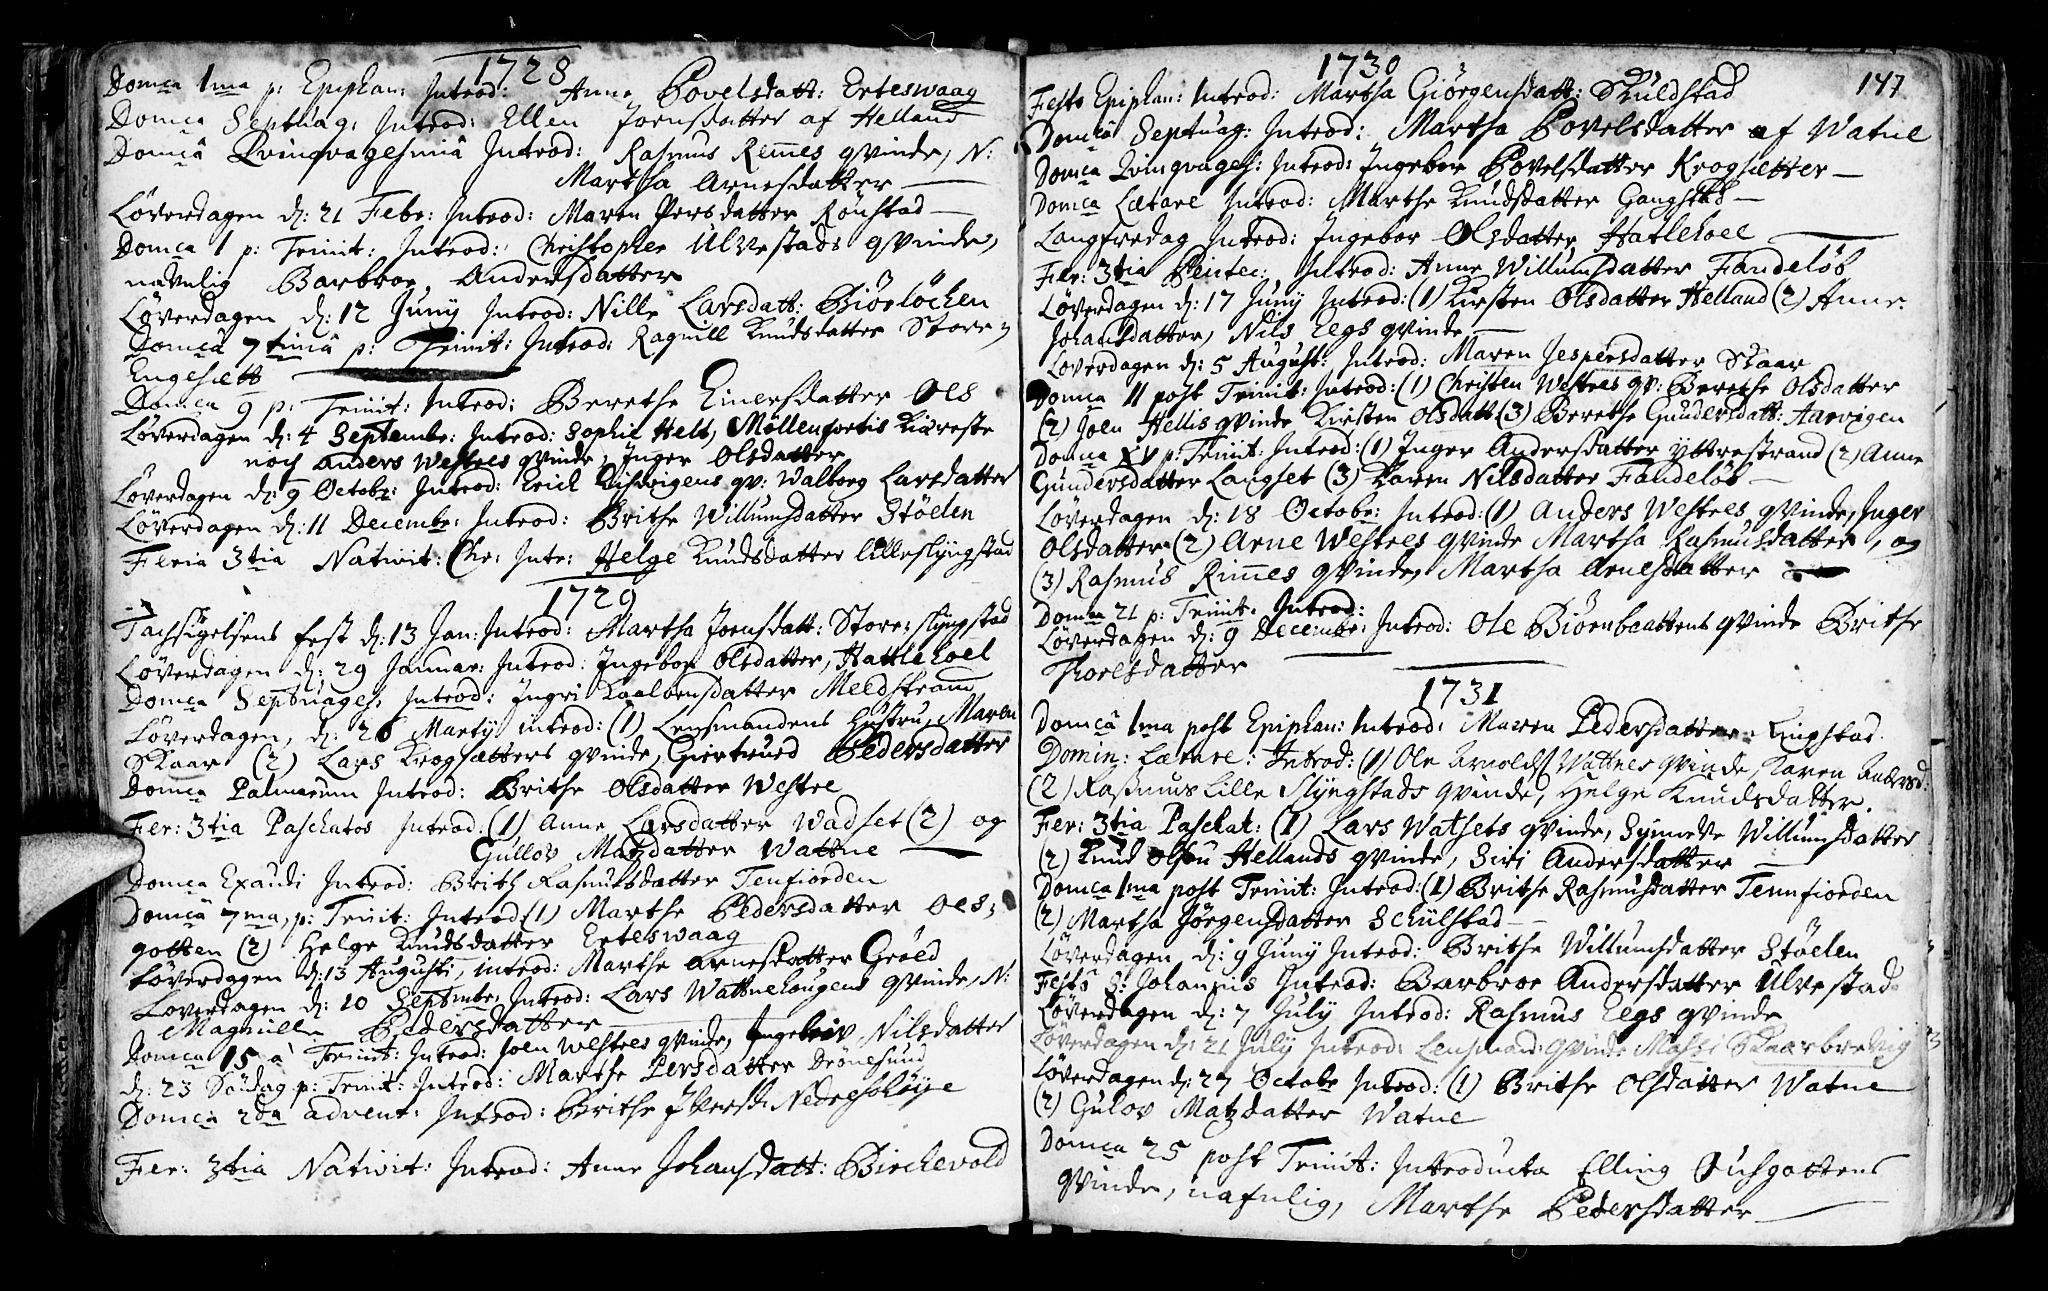 1728
Domca 1ma p: Epiphan: Introd: Anne Povelsdatt: Erteswaag
Domca Septuag: Introd: Ellen Joensdatter af Helland
Domcâ Qvinqvagesimâ Introd: Rasmus Remes qvinde, N:
Martha Arnesdatter
Löverdagen d: 21 Febr: Introd: Maren Persdatter Rönstad
Domca 1 p: Trinit: Introd: Christopher Ulvestads qvinde,
navnlig Barbroe Andersdatter
Löverdagen d: 12 Junij Introd: Nille Larsdatt: Biörlöchen
Domca 7timâ p: Trinit: Introd: Ragnill Knudsdatter Store-
Engesætt
Domca 9 p: Trinit: Introd: Berethe Einersdatter Oes
Löverdagen d: 4 Septembr: Introd: Sophie Helt, Möllenfortis Kiæreste
noch Anders Westres qvinde, Inger Olsdatter
Löverdagen d: 9 Octobr: Introd: Erick qv: Walborg Larsdatter
Löverdagen d: 11 Decembr: Introd: Brithe Willumsdatter Stöelen
Feria 3tia Nativit: Chr: Intr: Helge Knudsdatter Lilleslyngstad
1729
Tachsigelsens fest d: 13 Jan: Introd: Martha Joensdatt: Store-slyngstad
Löverdagen d: 29 Januar: Introd: Ingebor Olsdatter, Hattlehoel
Domca Septuages: Introd: Ingri Kaalbensdatter Meldstram
Löverdagen, d: 26 Martij introd: (1) Lensmandens Hustru, Maren
Skaar (2) Lars Krogsætters qvinde, Giertrued Pedersdatter
Domca Palmarum Introd: Brithe Olsdatter Westre
Fer: 3tia Paschatos Introd: (1) Anne Larsdatter Wadset (2) og
Gullov Matzdatter Wattne
Domca Exaudi Introd: Brith Rasmusdatter Tenfiorden
Domcâ 7ma, p: Trinit: Introd (1) Marthe Pedersdatter Oes-
gotten (2) Helge Knudsdatter Erteswaag
Löverdagen d: 13 Augusti, introd: Marthe Arnesdatter Gröed
Loverdagen d: 10 Septmbr: Introd: Lars Wattnehougens qvinde, N:
Magnill Pedersdatter
Domca 15 a Trinit: Introd: Joen Westres qvinde, Ingeleiv Nilsdatter
d: 23 Söndag p: Trinit: Introd: Marthe Persdatter Drönesund
Domca 2da advent: Introd: Brithe Iversd: Nedregsløye
Fer: 3tia Nativit: Introd: Anne Johansdatt: Birchevold
147
1730
Festo Epiphan: Introd: Martha Giörgensdatt: Skuldstad
Domcâ Septuag: Introd: Martha Povelsdatter af Watne
Domca Qvinqvages: Introd: Ingebor Povelsdatter Krogsætter
Domca Lætare Introd: Marthe Knudsdatter Gangstad
Langfredag Introd: Ingebor Olsdatter Hatlehoel
Fer: 3tia Pentec: Introd: Anne Willumsdatter Fandelöb
Löverdagen d: 17 Junij Introd: (1) Kirsten Olsdatter Helland (2) Anne
Johansdatter, Nils Eegs qvinde
Loverdagen d: 5 August: Introd: Maren Jespersdatter Skaar
Domca 11 post Trinit: Introd: (1) Christen Westres qv: Berethe Olsdatter
(2) Joen Hellis qvinde Kirsten Olsdatt (3) Berethe Gundersdatt: Aarvigen
Domca XV p: Trinit: Introd: (1) Inger Andersdatter yttrestrand (2) Anne
Gundersdatter Langset (3) Karen Nilsdatter Fandelöb
Löverdagen d: 18 Octobr: Introd: (1) Anders Westres qvinde, Inger
Olsdatter (2) Arne Westres qvinde Martha Rasmusdatter, og
(3) Rasmus Rimes qvinde, Martha Arnesdatter
Domca 21 p: Trinit: Introd:
Löverdagen d: 9 Decembr: Introd: Ole Biörnbaattens qvinde Brithe
Thoresdatter
1731
Domcâ 1ma post Epiphan: Introd: Maren Pedersdatter Lingstad
Domin: Lætare: Introd: (1) Ole Arnolds Wattnes qvinde, Karen Andersd.
(2) Rasmus Lille Slyngstads qvinde, Helge Knudsdatter.
Fer: 3tia Paschat: (1) Lars Watsets qvinde, Synneve Willumsdatter
(2) Knud Olsøn Hellands qvinde, Siri Andersdatter
Domca 1ma post Trinit: Introd: (1) Brithe Rasmusdatter Tennfiorden
(2) Martha Jörgensdatter Schulstad
Löverdagen d: 9 Junij Introd: Brithe Willumsdatter Stöelen
Festo S: Johannis Introd: Barbroe Andersdatter Ulvestad
Löverdagen d: 7 Julij Introd: Rasmus Eegs qvinde
Löverdagen d: 21 Julij Introd: Lensmand: Qvinde Massi Skaarbrevig
Löverdagen d: 27 Octobr Introd: (1) Brithe Olsdatter Watne
(2) Gulov Matzdatter Watne
Domca 25 post Trinit: Introducta Elling Ousgottens
qvinde, nafnlig, Marthe Pedersdatter